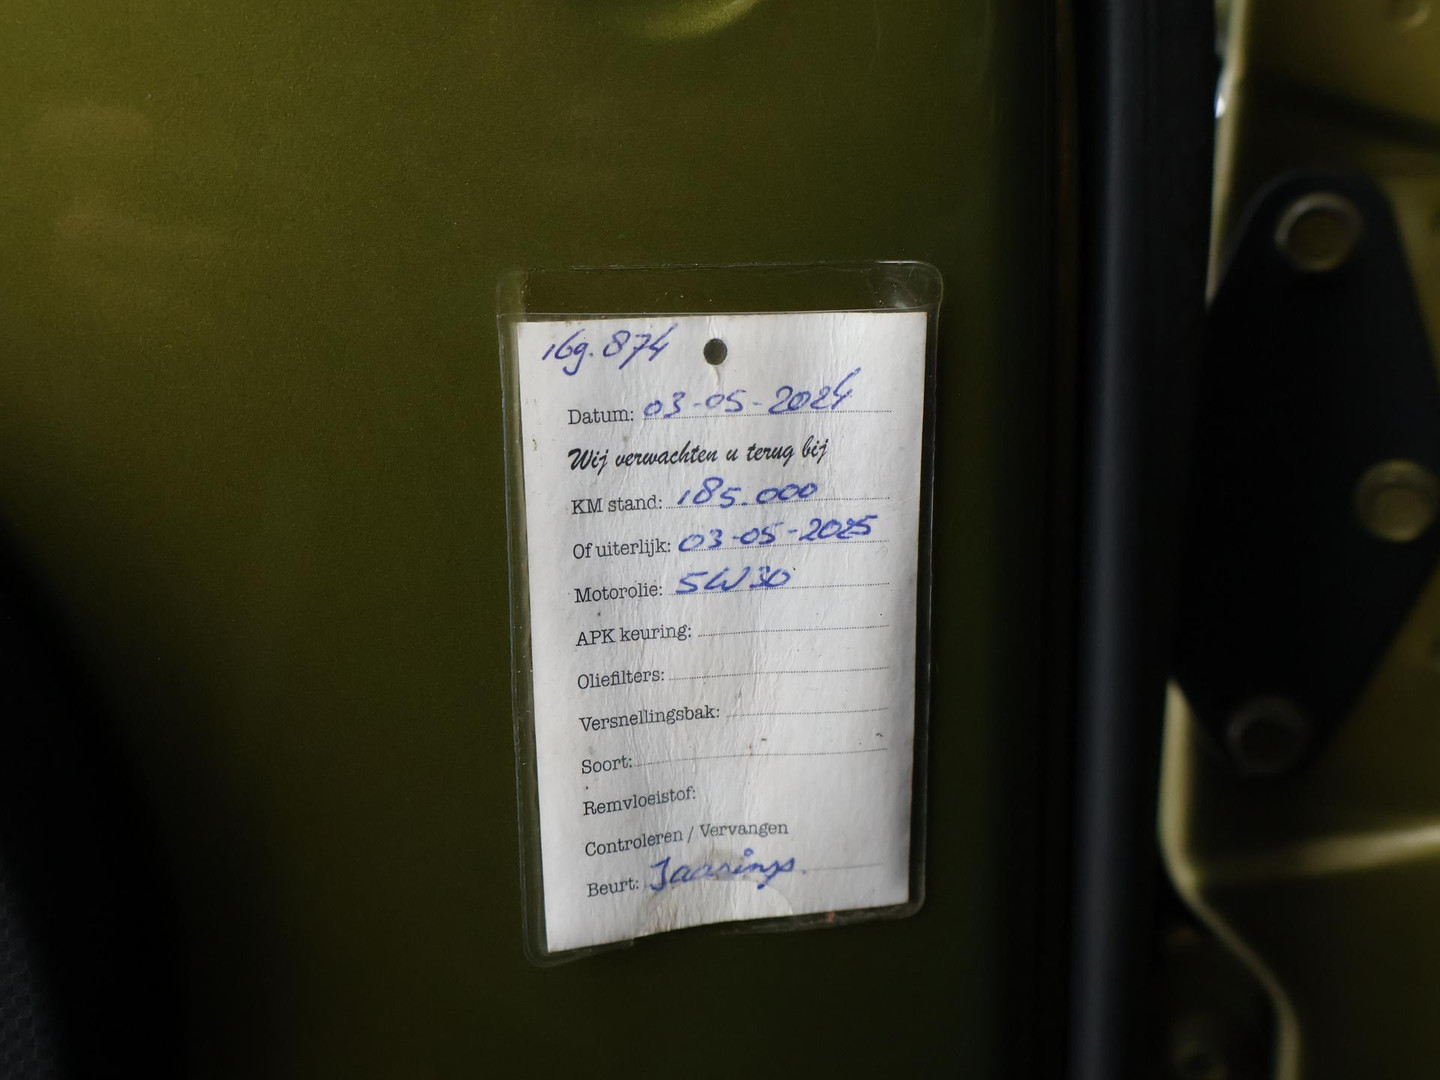 169.874
Datum: 03-05-2024
Wij verwachten u terug bij
KM stand: 185.000
Of uiterlijk: 03-05-2025
Motorolie: 5W30
APK keuring:
Oliefilters:
Versnellingsbak:
Soort:
Remvloeistof:
Controleren / Vervangen
Beurt: